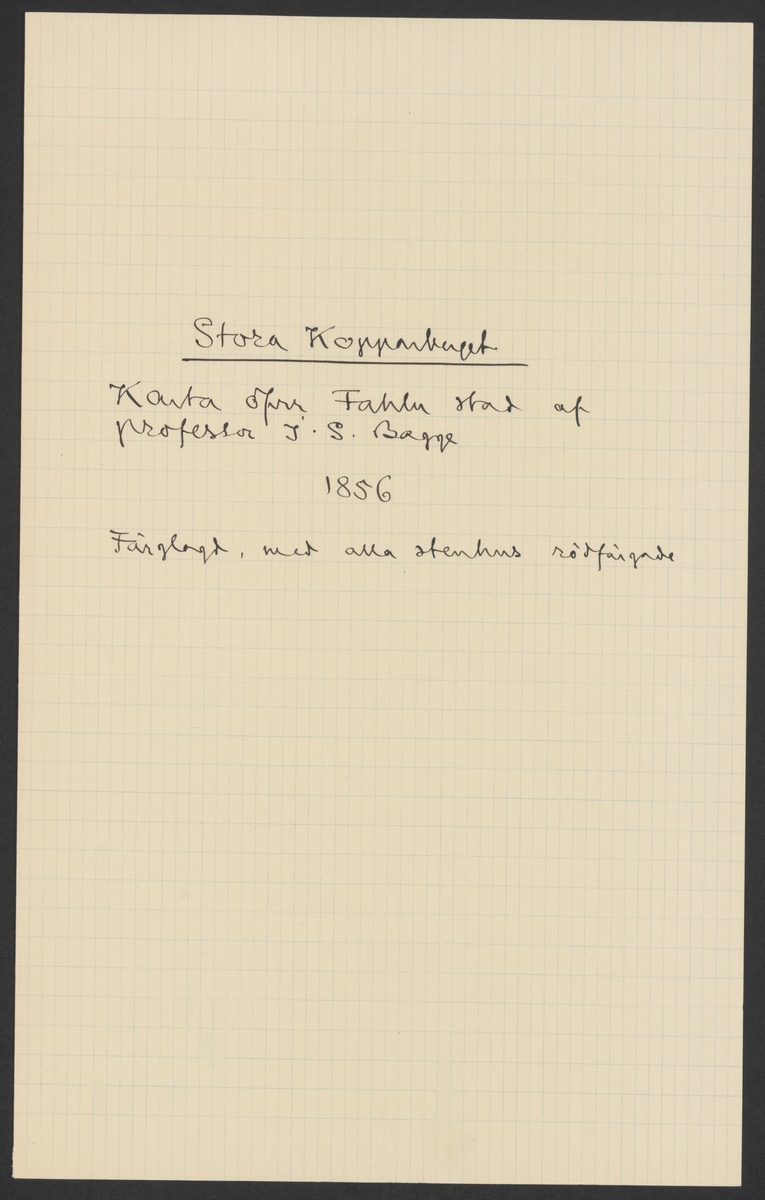 Stora Kopparberget
Karta öfver Fahlu stad af
professor J. S. Bagge
1856
Färglagd, med alla stenhus rödfärgade